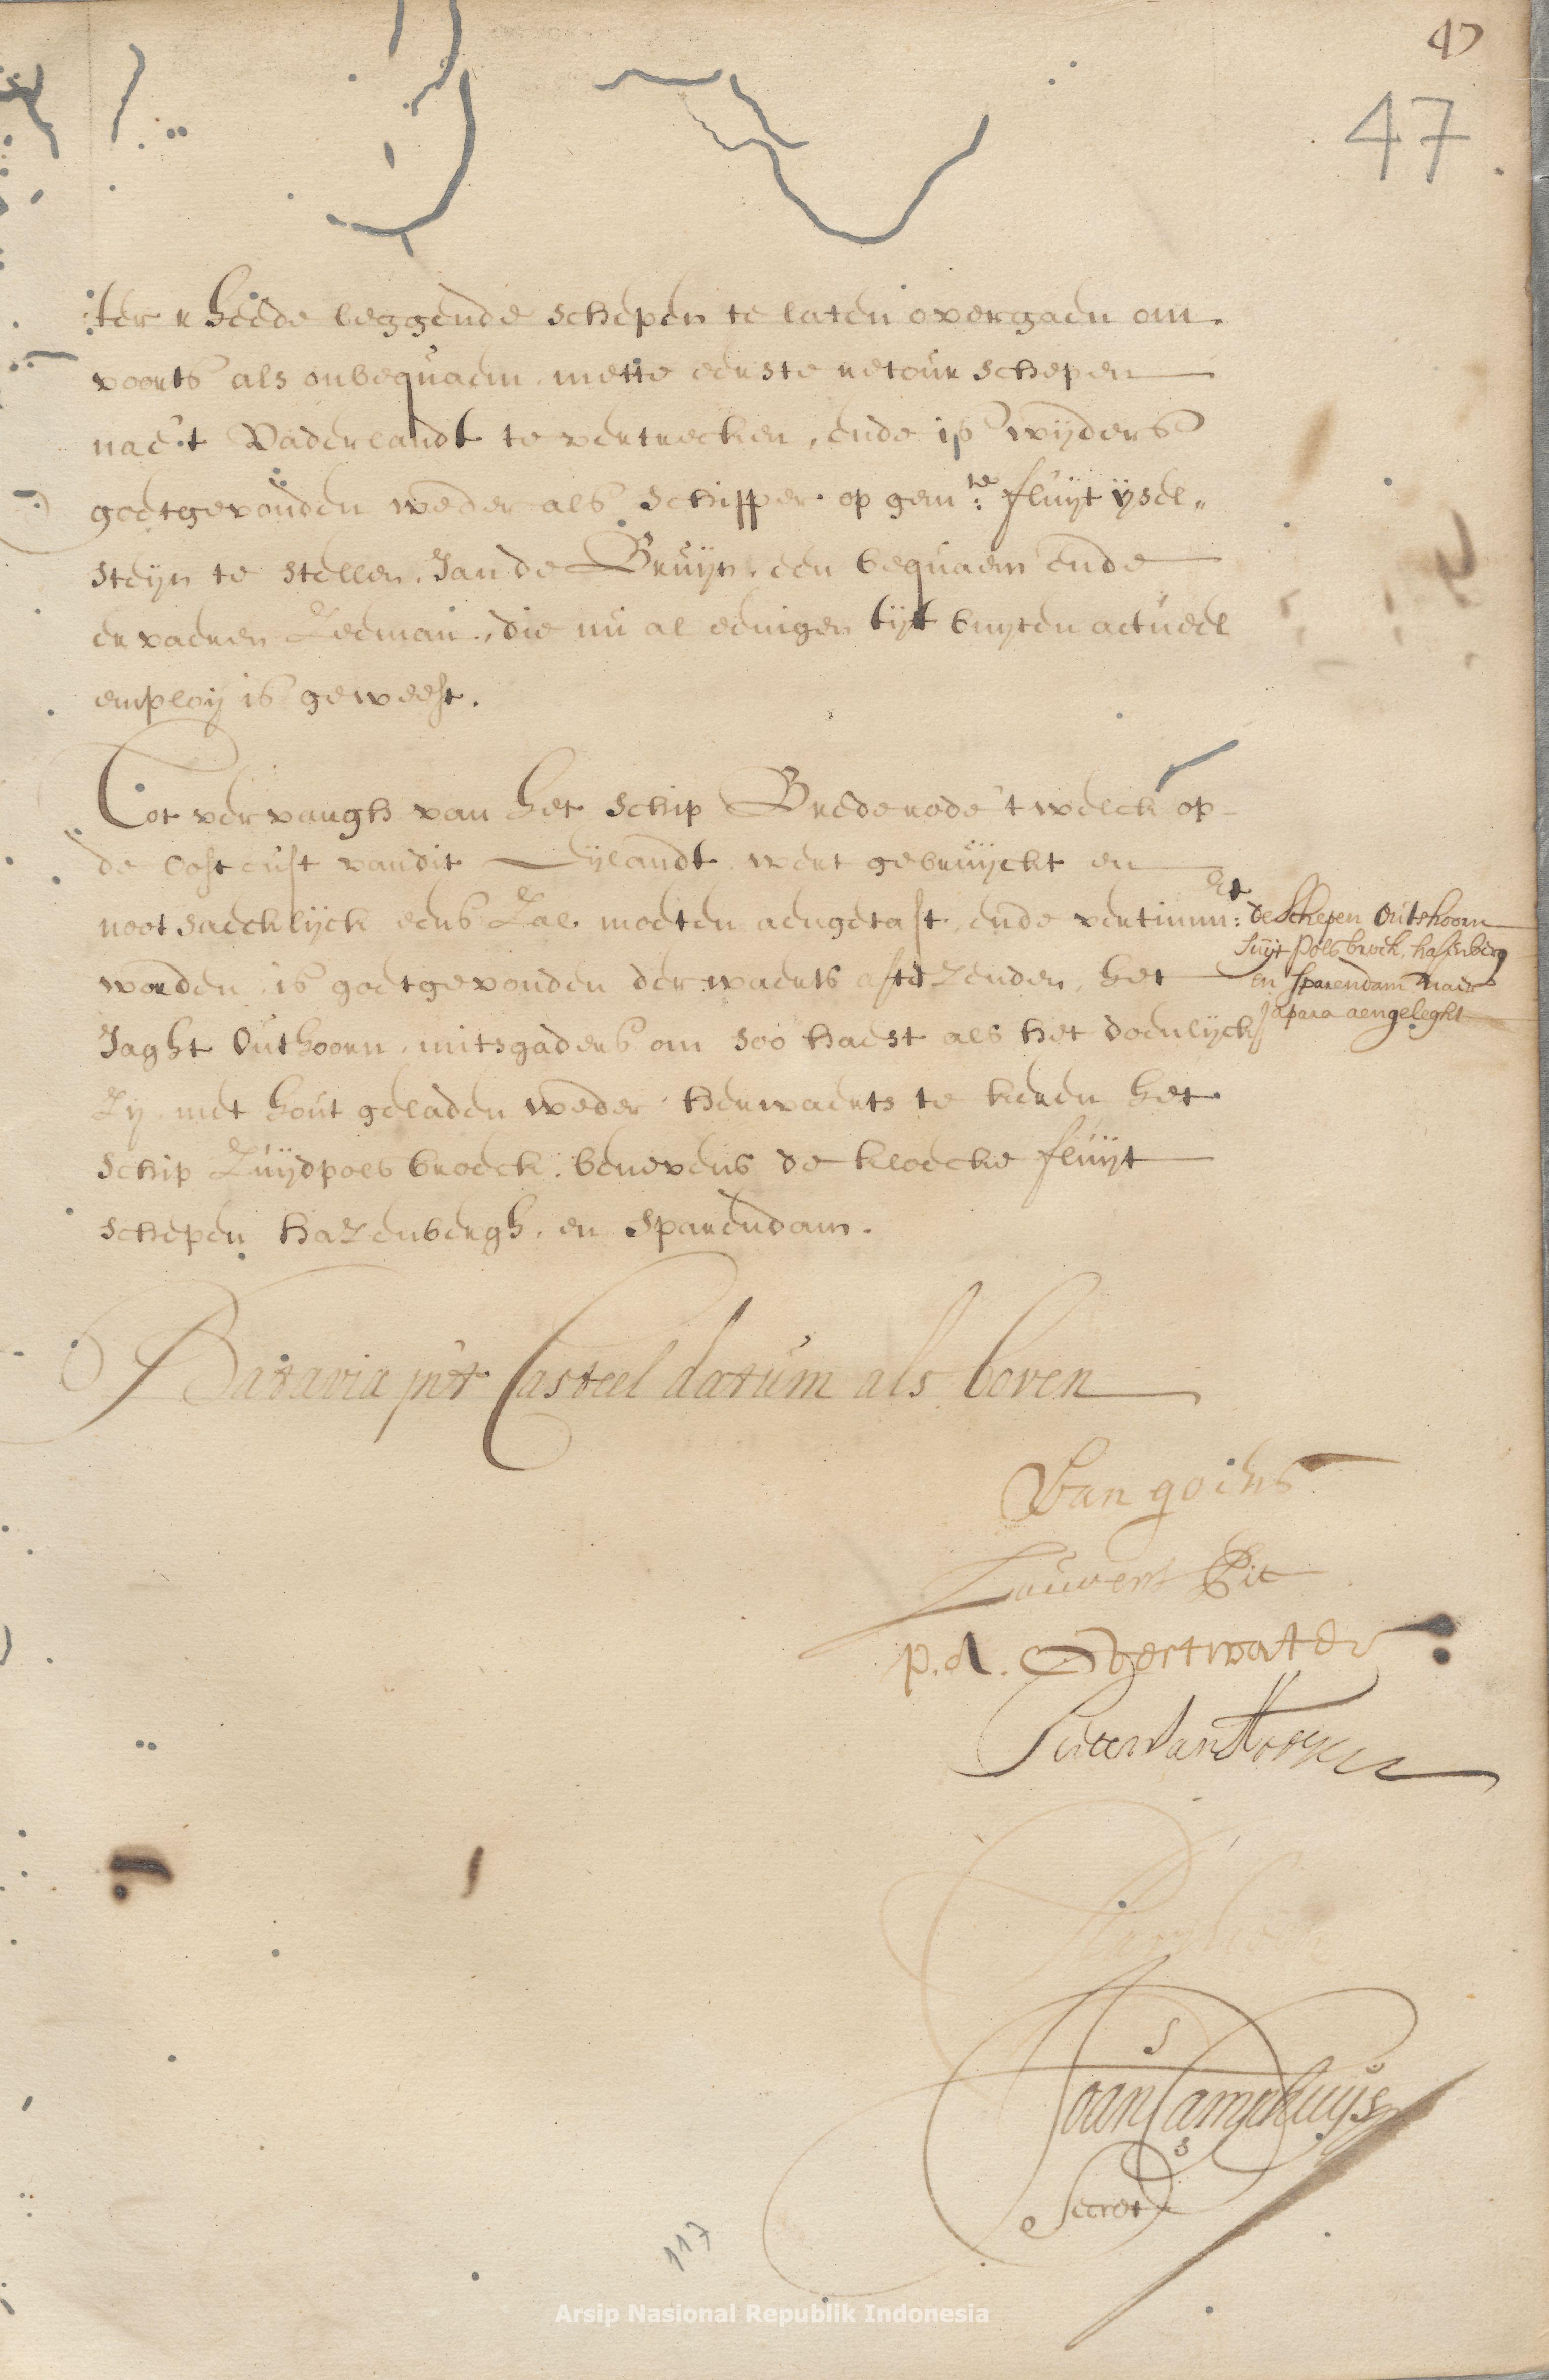 47
47
ter rheede leggende schepen te laten overgaen om
voorts als onbequaem mette eerste retour schepen
nae 't Vaderlandt te vertrecken, ende is wijders
goetgevonden weder als schipper op gem:te fluijt ijsel„
steijn te stellen, Jan de Bruijn, een bequaem ende
ervaren Zeeman, die nu al eenigen tijt buijten actueel
emploij is geweest.
Tot vervangh van het schip Brederode 't welck op
de Oost cust van dit Eijlandt wert gebruijckt en
nootsaecklijck eens Zal moeten aengetast, ende vertimmert
worden, is goetgevonden derwaerts afte Zenden, het
Jaght Outhoorn, mitsgaders om soo haest als het doenlijck
Zij met hout geladen weder herwaerts te keren het
schip Zuijdpolsbroeck, benevens de kloecke fluijt
schepen haZenbergh, en Sparendam.
de Schepen Outshoorn
Suijt Polsbroek, hasenberg
en Sparendam naer
Japara aengeleght
Batavia int Casteel datum als boven
Van goens
Louwens Pit
p. A. Overtwater
Pieter van Hoorn
Joan Camphuijs
Secret
117
Arsip Nasional Republik Indonesia